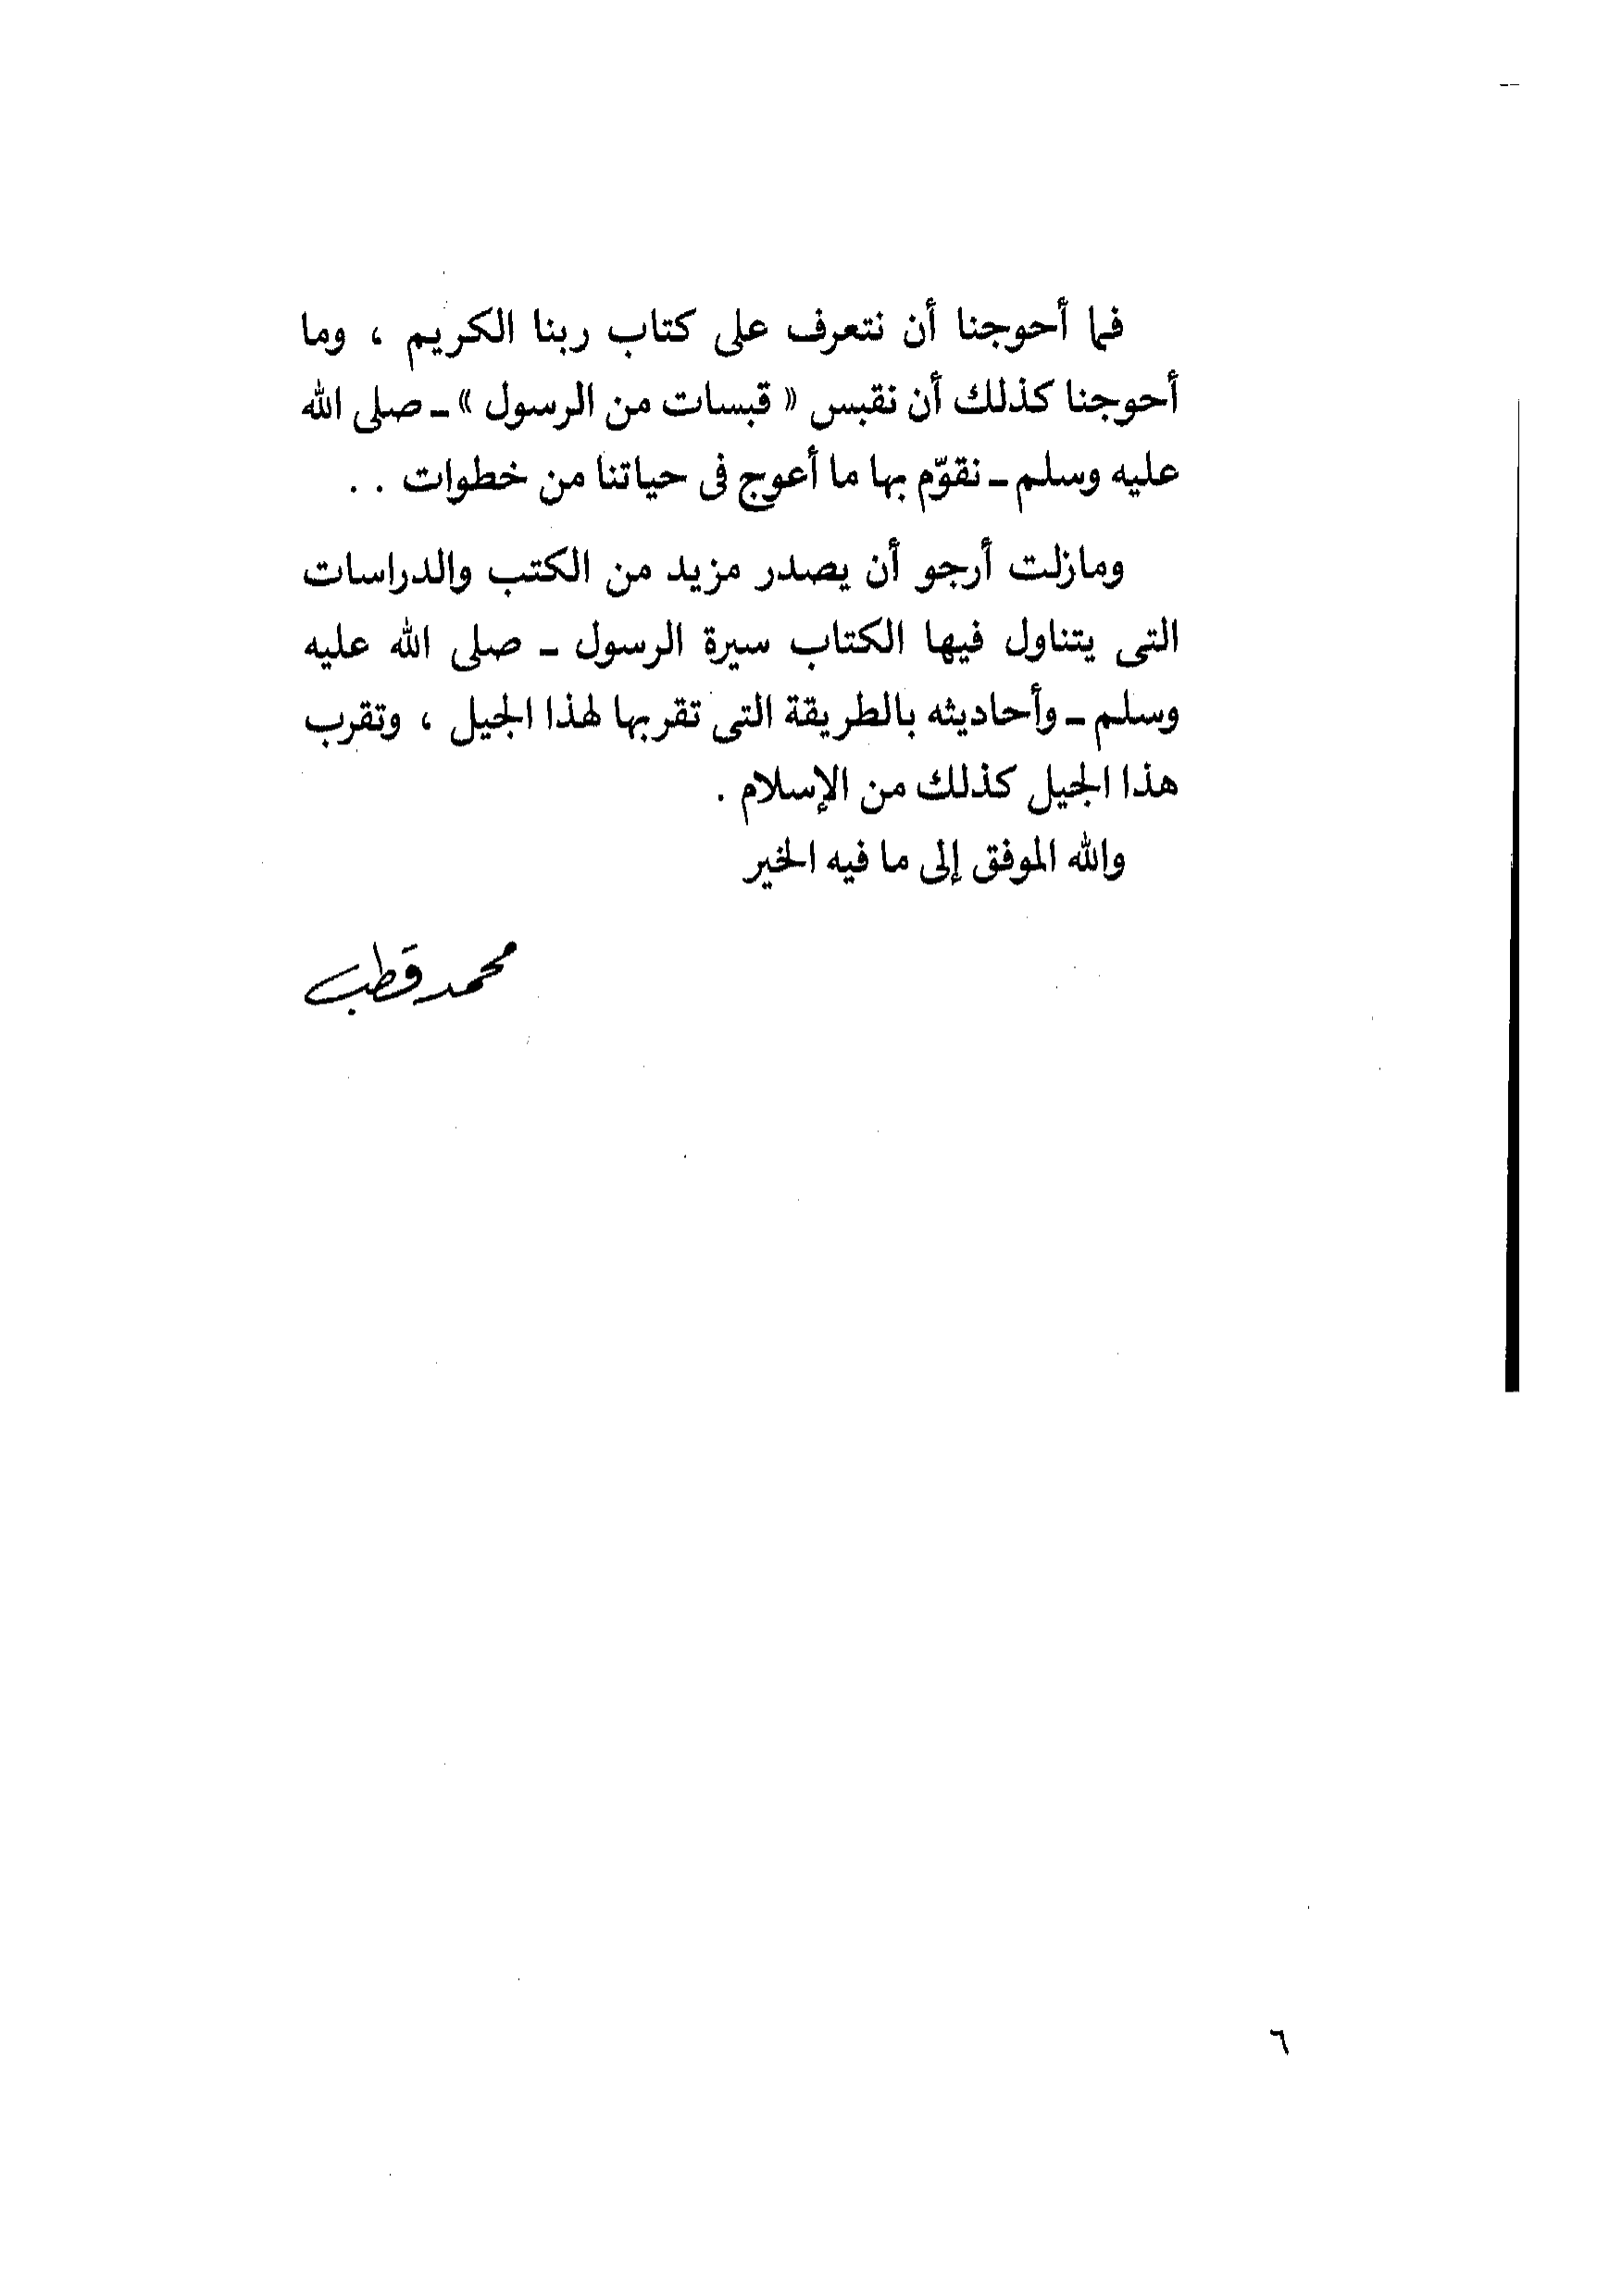 فما أحوجنا أن نتعرف على كتاب ربنا الكريم ، وما
أحوجنا كذلك أن نقبس « قبسات من الرسول » ـ صلى الله
عليه وسلم ـ نقوّم بها ما أعوج فى حياتنا من خطوات . .
ومازلت أرجو أن يصدر مزيد من الكتب والدراسات
التى يتناول فيها الكتاب سيرة الرسول ـ صلى الله عليه
وسلم ـ وأحاديثه بالطريقة التى تقربها لهذا الجيل ، وتقرب
هذا الجيل كذلك من الإسلام .
والله الموفق إلى ما فيه الخير
محمد قطب
٦